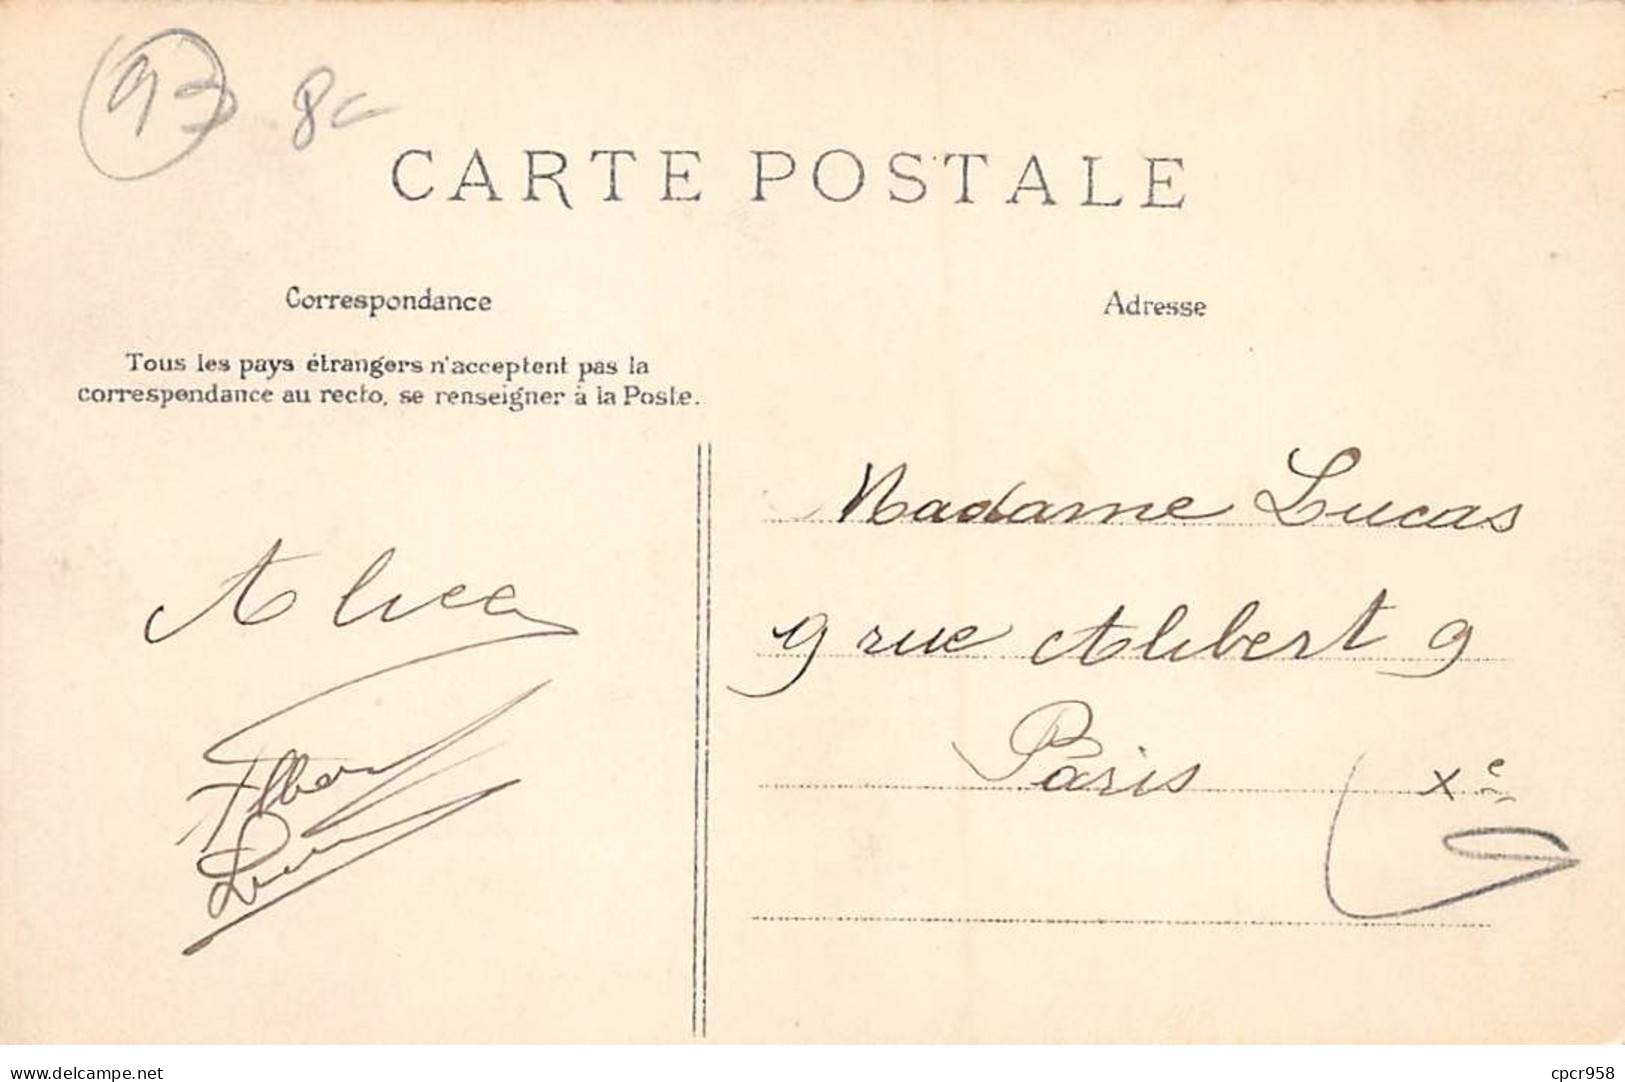 93 8c
CARTE POSTALE
Correspondance
Tous les pays étrangers n'acceptent pas la
correspondance au recto, se renseigner à la Poste.
Alice
Albert
Adresse
Madame Lucas
9 rue Alibert 9
Paris Xe
delcampe.net
cpcr958